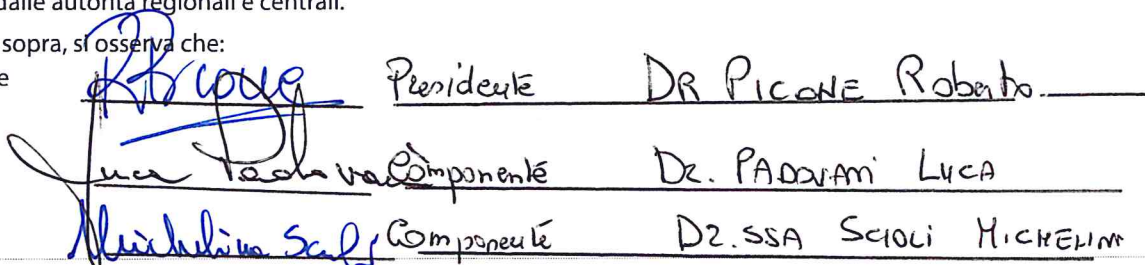 dalle autorità regionali e centrali.
sopra, si osserva che:
e
RPicone Presidente DR PICONE Roberto
Luca Padovani Componente Dr. PADOVANI LUCA
Michelina Componente DR.SSA SCIOLI MICHELINA